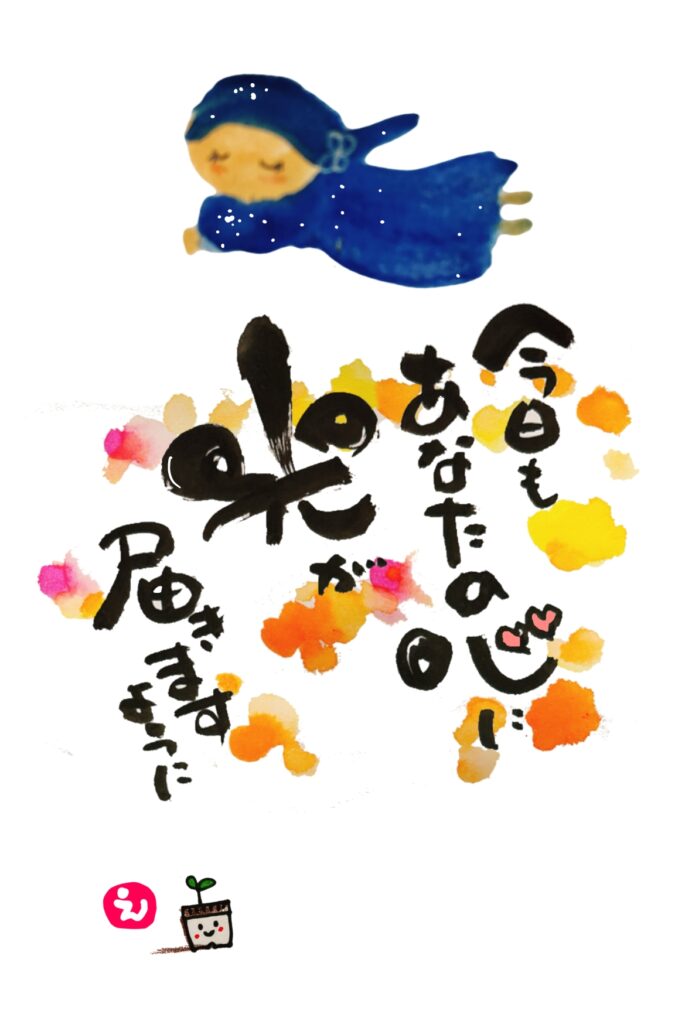 今日も
あなたの
心に
光が
届きます
ように
えん